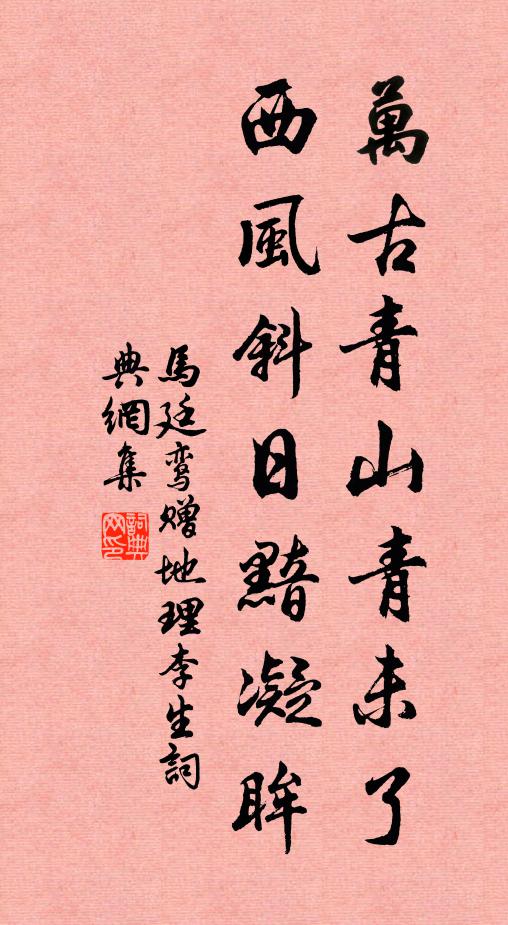 萬古青山青未了
西風斜日黯凝眸
馬廷鸞赠地理李生詞
典網集
詞典网印